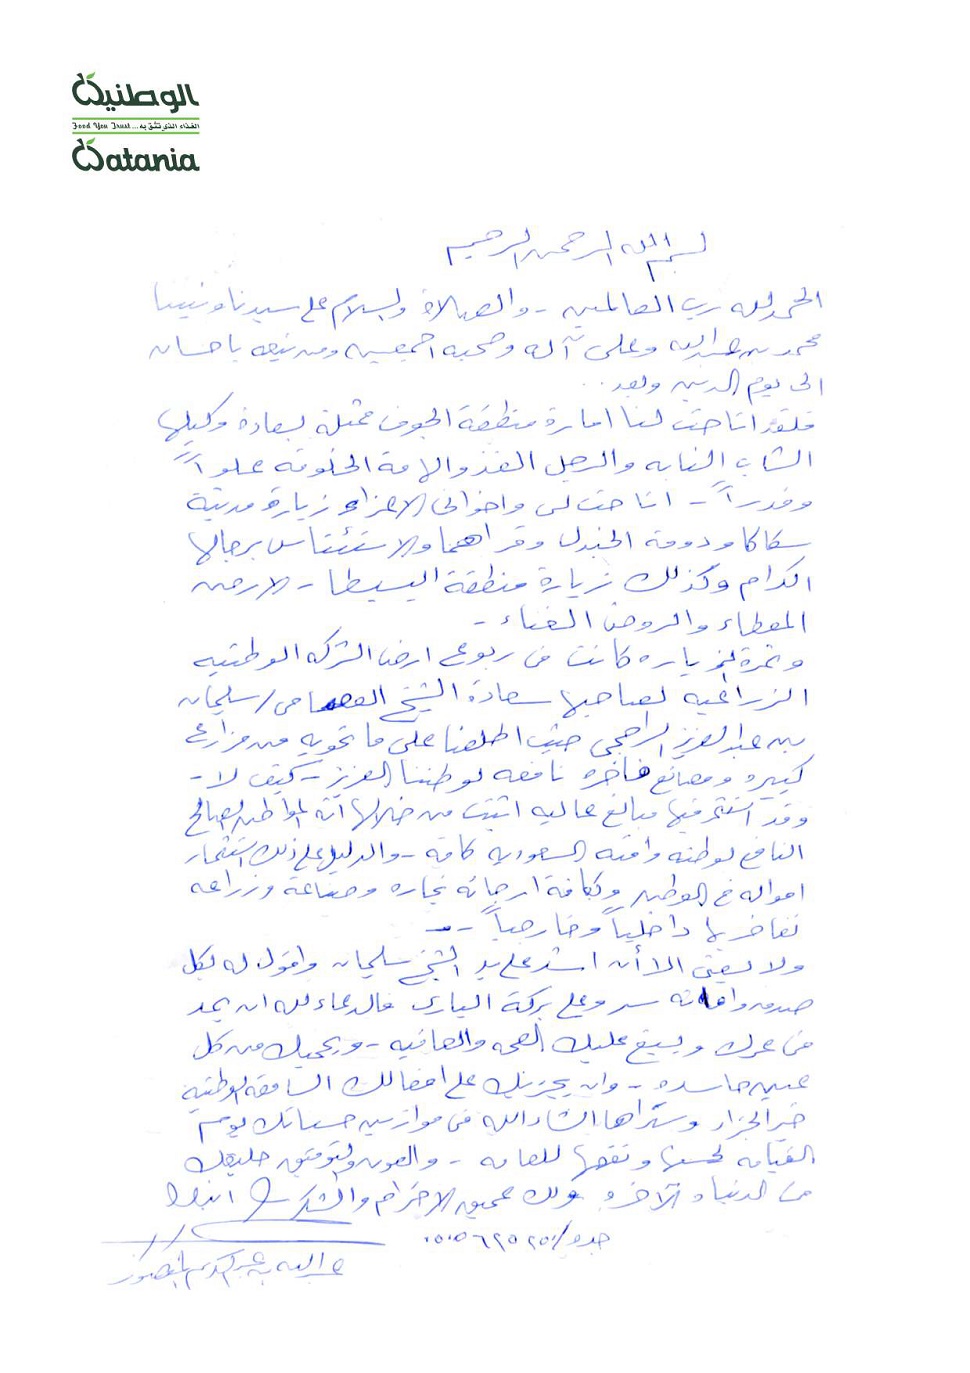 الوطنية
Food You Trust... الغذاء الذي تثق به
Watania
بسم الله الرحمن الرحيم
الحمد لله رب العالمين - والصلاة والسلام على سيدنا ونبينا
محمد بن عبد الله وعلى آله وصحبه اجمعين ومن تبعه باحسان
الى يوم الدين وبعد..
فلقد اتاحت لنا امارة منطقة الجوف ممثلة بسعادة وكيلها
الشاب النابه والرجل الفذ والامة الخلوقة علواً
وقدراً - اتاحت لي واخواني الاعزاء زيارة مدينة
سكاكا ودومة الجندل وقراهما والاستئناس برجالها
الكرام وكذلك زيارة منطقة البسيطا - الارض
المعطاء والروض الغناء -
وثمرة الزياره كانت في ربوع ارض الشركه الوطنيه
الزراعيه لصاحبها سعادة الشيخ العصامي / سليمان
بن عبد العزيز الراجحي حيث اطلعنا على ما تحويه من مزارع
كبيره ومصانع فاخره نافعه لوطننا العزيز - كيف لا -
وقد استثمر فيها مبالغ عاليه اثبت من خلالها انه المواطن الصالح
النافع لوطنه وامته السعوديه كافه - والدليل على ذلك استثمار
امواله في الوطن وبكافة ارجائه تجاره وصناعة وزراعه
نفاخر بها داخلياً وخارجياً -
ولا يسعني الا أن اشد على يد الشيخ سليمان واقول له بكل
صدق وامانه سر وعلى بركة الباري فالدعاء لله ان يمد
في عمرك ويسبغ عليك الصحه والعافيه - ويحميك من كل
عين حاسده - وان يجزيك على افعالك الوطنية
خير الجزاء وستراها انشاء الله في موازين حسناتك يوم
القيامه لحسنها ونفعها للعامه - والعون والتوفيق حليفك
في الدنيا والآخره ولك عميق الاحترام والشكر ابدا
جدة / ٠٥٠٥٦٢٥٢٥٠
عبد الله بن عبد الكريم